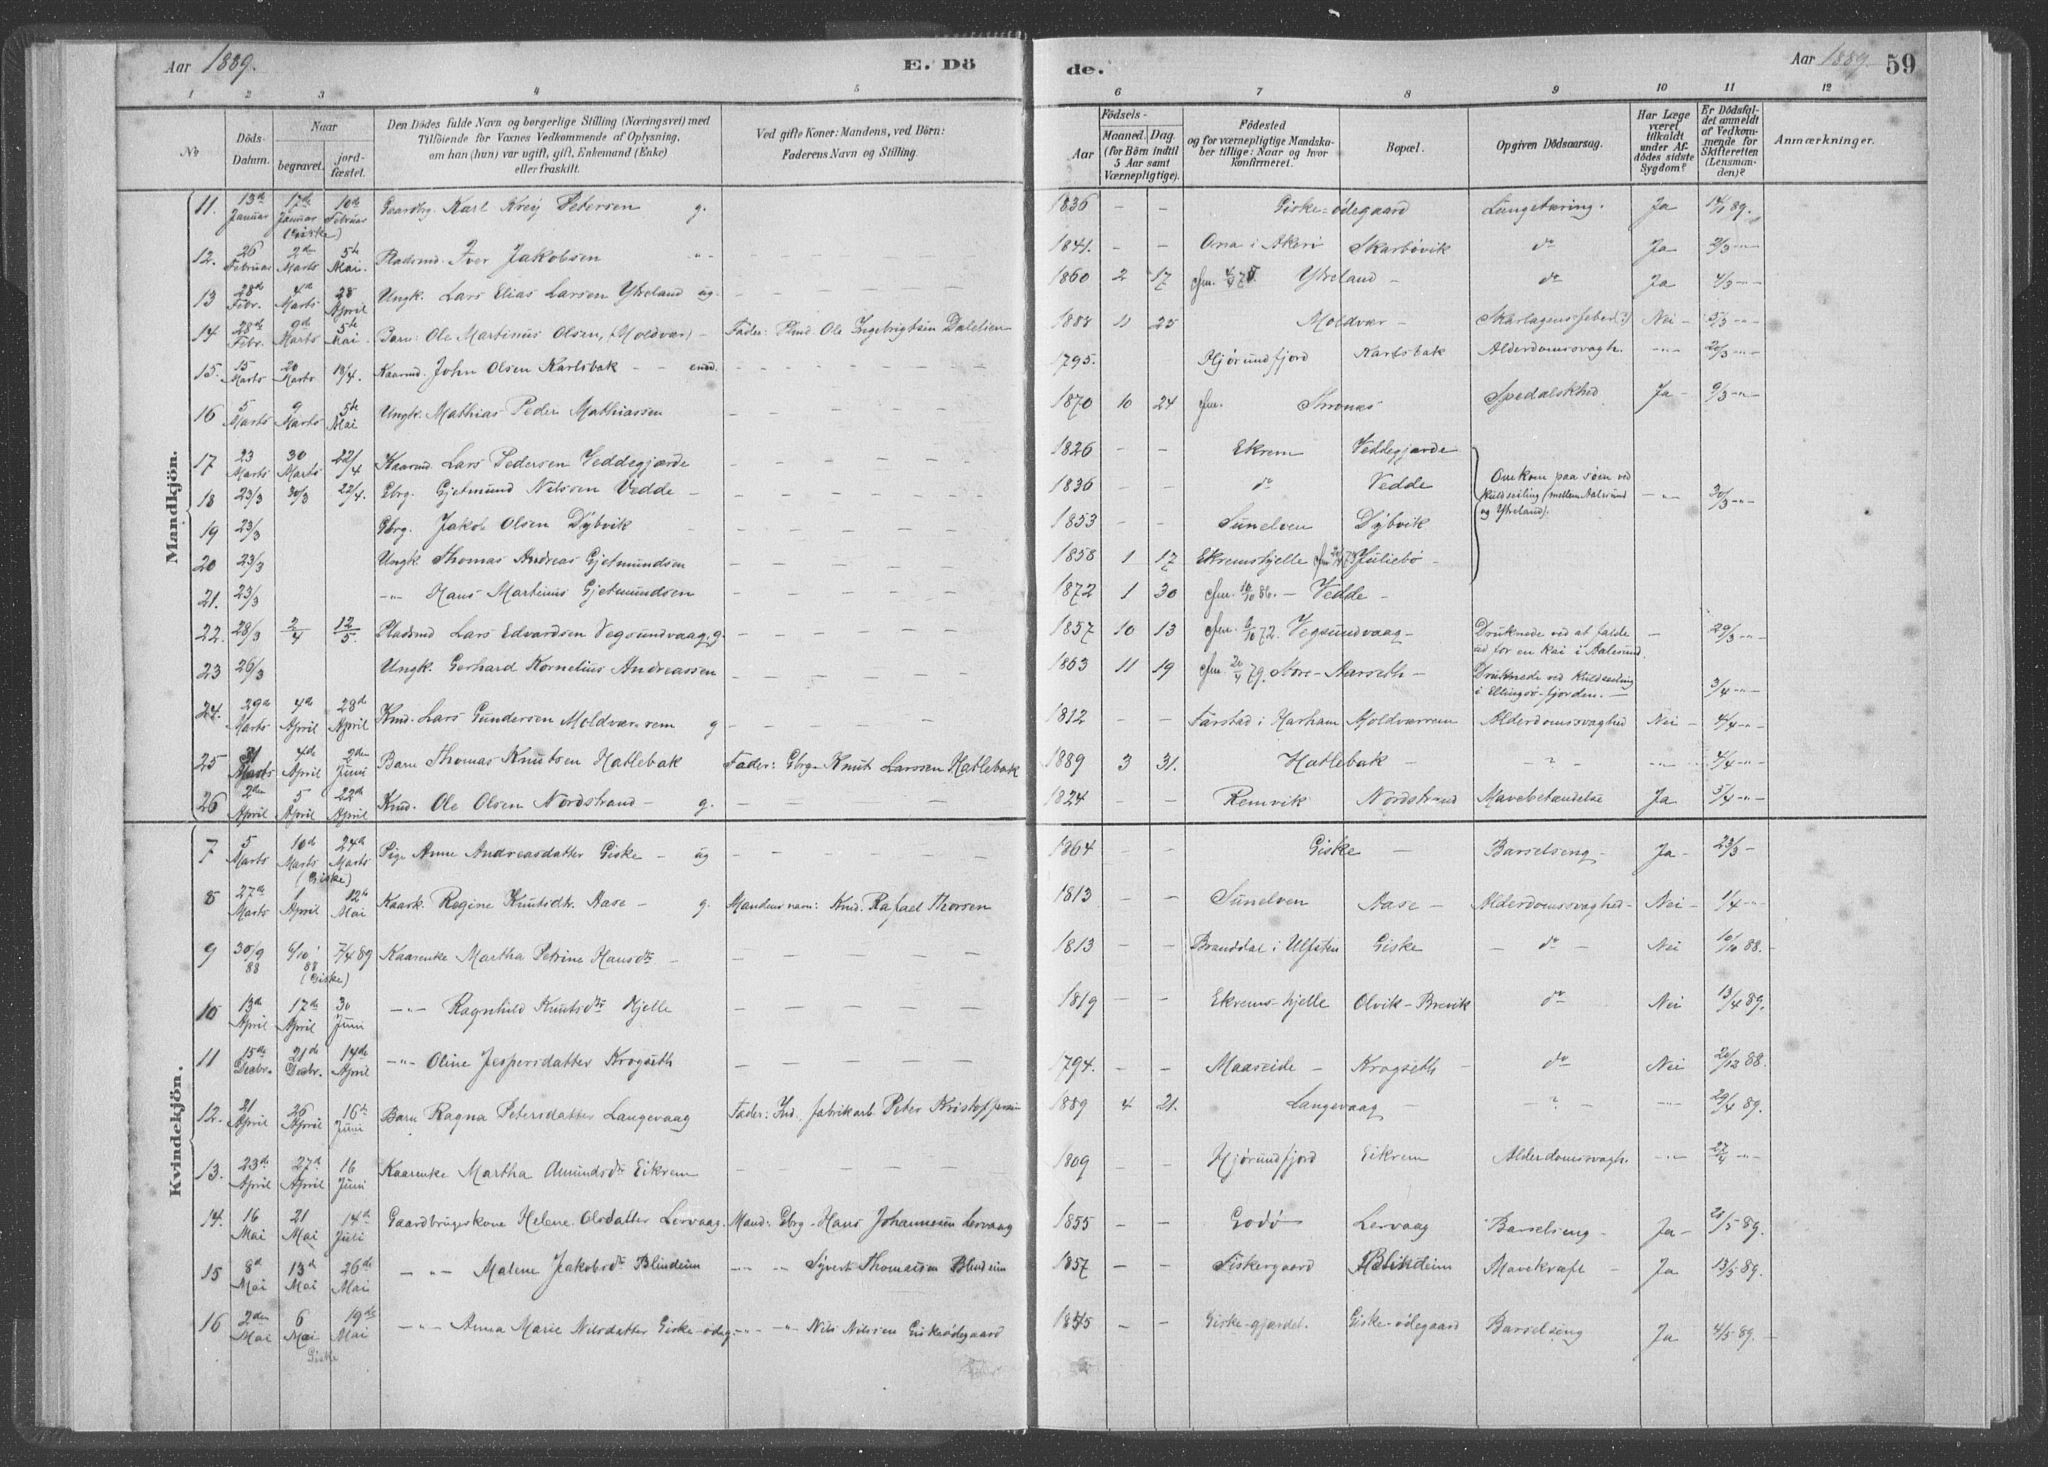 Aar 1889. E. Dö
de. Aar 1889. 59
1 2 3 4 5 6 7 8 9 10 11 12
No
Döds-Datum.
Naar
begravet.
jordfæstet.
Den Dödes fulde Navn og borgerlige Stilling (Næringsvei) med Tilföiende for Voxnes Vedkommende af Oplysning, om han (hun) var ugift, gift, Enkemand (Enke) eller fraskilt.
Ved gifte Koner: Mandens, ved Börn: Faderens Navn og Stilling.
Födsels-
Aar
Maaned. Dag.
(for Börn indtil 5 Aar samt Værnepligtige).
Födested og for værnepligtige Mandskaber tillige: Naar og hvor konfirmeret.
Bopæl.
Opgiven Dödsaarsag.
Har Læge været tilkaldt under Afdödes sidste Sygdom?
Er Dödsfaldet anmeldt af Vedkommende for Skifteretten (Lensmanden)?
Anmærkninger.
Mandkjön.
11. 13de Januar 17de Januar (Giske) 10de Februar Gaardbg. Karl Kreij Petersen g. 1836 — — Giske-ødegaard Lungetæring. Ja 14/1 89.
12. 26 Februar 2de Marts 5te Mai. Pladsmd. Iver Jakobsen „ 1841. — — Skarbøvik do Ja 2/3 „
13 28de Febr. 4de Marts 28 April Ungk. Lars Elias Larsen Ytreland ug. 1860 2 17 Ytreland — do Ja 4/3 „
14 28de Febr. 9de Marts 5te Mai. Barn: Ole Martinus Olsen, (Moldvær) — Fader: Plmd Ole Ingebrigtsen 1888 11 25 Moldvær — Nei — 5/3 „
15. 15 Marts 20 Marts 18/4. Kaarmd. John Olsen Karlsbak — — enkd. 1795. Hjørundfjord Karlsbak Alderdomsvagh. „ 20/3 „
16 5 Marts 9 Marts 5te Mai Ungk. Mathias Peder Mathiassen 1870 10 24 cfm. Spedalskhed Ja — 9/3 „
17 23 Marts 30 Marts 22/4 Kaarmd. Lars Pedersen Veddegjærde 1826 — — Ekrem Veddegjærde
18 23/3 30/3 22/4. Gbrg. Gjetmund Nilsen Vedde — 1836 — — do Vedde Omkom paa søen ved Kuldseiling (mellem Aalesund og Ytreland). „ 30/3 „
19 23/3 Gbrg. Jakob Olsen Dybvik 1853 — — Sunelven Dybvik
20 23/3 Ungk. Thomas Andreas Gjetmundsen 1858 1 17 Ekremshjelle Juliebø —
21. 23/3 „ Hans Martinus Gjetmundsen 1872 1 30 cfm. 10/10 86. — Vedde —
22. 28/3 2/4 12/5 Pladsmd Lars Edvardsen Vegsundvaag g. 1857 10 13 Vegsundvaag — Druknede ved at falde ud for en Kai i Aalesund. — 29/3 „
23 26/3 Ungk. Gerhard Kornelius Andreassen 1863 11 19 cfm. 20/4 79. Nore-Aarseth — Druknede ved Kuldseiling i Ellingsø-fjorden. — 3/4 „
24. 29de Marts 4de April 28de April Kmd. Lars Gundersen Moldværrem g 1812 — — Farstad i Harham Moldværrem Alderdomsvaghed Nei — 4/4 „
25 31 Marts 4de April 2den Juni Barn Thomas Knutsen Hatlebak Fader: Gbrg. Knut Larssen Hatlebak 1889 3 31. Hatlebak — „ „ 4/4 „
26 2den April 5 April 22de April Kmd. Ole Olsen Nordstrand — g. 1824 — — Remvik Nordstrand Mavebetændelse Ja 5/4 „
Kvindekjön.
7 5 Marts 10de Marts (Giske) 24de Marts Pige Anne Andreasdatter Giske — ug 1864 — — Giske — Barselseng — Ja — 23/3 —
8 27de Marts 1 April 12te Mai Kaark. Regine Knutsdtr. Aase — g. Mandens navn: Kmd. Rafael Thorsen 1813 — — Sunelven Aase — Alderdomsvaghed — Nei — 1/4 „
9 30/9 88 6/10 88 (Giske) 7/4 89 Kaarenke Martha Petrine Hansdtr — 1813 — — Branddal i Ulfsten Giske — do — Nei 10/10 88.
10 13de April 17de April 30 Juni „ Ragnhild Knutsdtr Hjelle 1819 — — Ekrems-hjelle Olvik-Brevik do Nei 13/4 89.
11 15de Decbr. 21de Decbr. 14de April „ Oline Jespersdatter Krogseth 1794. — — Maaseide — Krogseth do Nei 20/12 88
12. 21 April 26 April 16de Juni Barn Ragna Petersdatter Langevaag Fader: Ind. fabrikarb. Peter Kristoffersen 1889 4 21. Langevaag — „ „ 29/4 89.
13. 23de April 27de April 16 Juni Kaarenke Martha Amundsdtr Eikrem 1809 — — Hjørundfjord Eikrem Alderdomsvagh. „ 27/4 „
14. 16 Mai 21 Mai 14de Juli Gaardbrugerskone Helene Olsdatter Lervaag. Mand: Gbrg. Hans Johannesen Lervaag 1855 — — Godø Lervaag Barselseng — Ja — 21/5 89.
15 8de Mai 13de Mai 26de Mai — „ Malene Jakobsdtr Blindeim — „ „ Syvert Thomassen Blindeim 1857 — — Fiskergaard Blindeim Mavekræft — Ja 13/5 89.
16 2den Mai 6 Mai Giske 19de Mai — „ Anna Marie Nilsdatter Giske-ødeg. — „ „ Nils Nilssen Giskeødegaard 1845 — — Giske-gjærdet. Giske-ødegaard Barselseng Ja 4/5 89. —